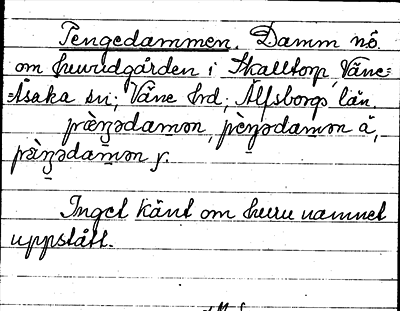 Pengedammen. Damm nö.
om huvudgården i Skalltorp, Väne-
-Åsaka sn; Väne hd; Älfsborgs län.
pæ̀ŋədamən, pèŋədamən ä,
pæ̀ŋədamən y.
Inget känt om huru namnet
uppstått.